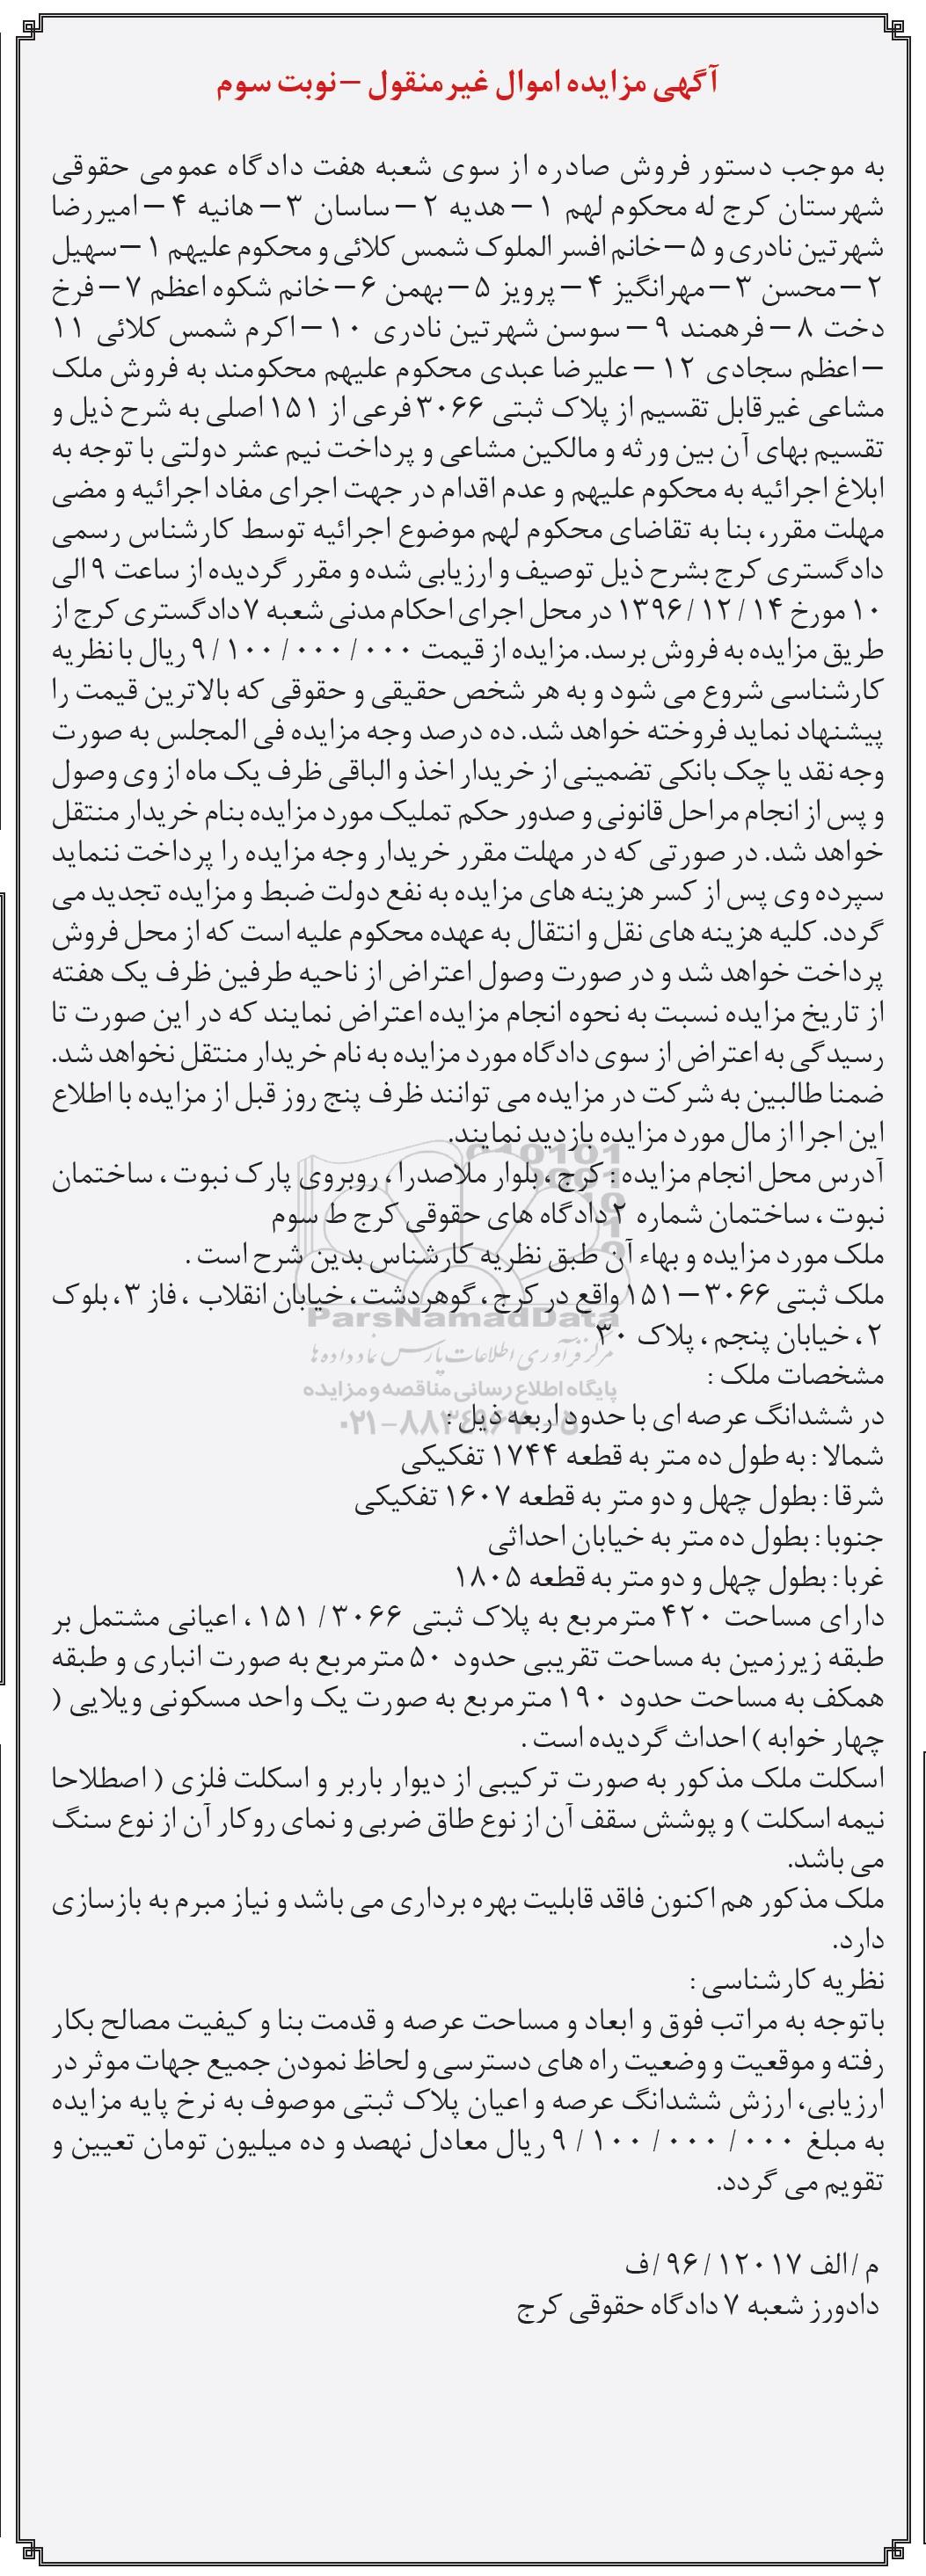 آگهی مزایده اموال غیرمنقول – نوبت سوم
به موجب دستور فروش صادره از سوی شعبه هفت دادگاه عمومی حقوقی
شهرستان کرج له محکوم لهم ۱ – هدیه ۲ – ساسان ۳ – هانیه ۴ – امیررضا
شهرتین نادری و ۵ – خانم افسر الملوک شمس کلائی و محکوم علیهم ۱ – سهیل
۲ – محسن ۳ – مهرانگیز ۴ – پرویز ۵ – بهمن ۶ – خانم شکوه اعظم ۷ – فرخ
دخت ۸ – فرهمند ۹ – سوسن شهرتین نادری ۱۰ – اکرم شمس کلائی ۱۱
– اعظم سجادی ۱۲ – علیرضا عبدی محکوم علیهم محکومند به فروش ملک
مشاعی غیرقابل تقسیم از پلاک ثبتی ۳۰۶۶ فرعی از ۱۵۱ اصلی به شرح ذیل و
تقسیم بهای آن بین ورثه و مالکین مشاعی و پرداخت نیم عشر دولتی با توجه به
ابلاغ اجرائیه به محکوم علیهم و عدم اقدام در جهت اجرای مفاد اجرائیه و مضی
مهلت مقرر، بنا به تقاضای محکوم لهم موضوع اجرائیه توسط کارشناس رسمی
دادگستری کرج بشرح ذیل توصیف و ارزیابی شده و مقرر گردیده از ساعت ۹ الی
۱۰ مورخ ۱۴ / ۱۲ / ۱۳۹۶ در محل اجرای احکام مدنی شعبه ۷ دادگستری کرج از
طریق مزایده به فروش برسد. مزایده از قیمت ۰۰۰ / ۰۰۰ / ۱۰۰ / ۹ ریال با نظریه
کارشناسی شروع می شود و به هر شخص حقیقی و حقوقی که بالاترین قیمت را
پیشنهاد نماید فروخته خواهد شد. ده درصد وجه مزایده فی المجلس به صورت
وجه نقد یا چک بانکی تضمینی از خریدار اخذ و الباقی ظرف یک ماه از وی وصول
و پس از انجام مراحل قانونی و صدور حکم تملیک مورد مزایده بنام خریدار منتقل
خواهد شد. در صورتی که در مهلت مقرر خریدار وجه مزایده را پرداخت ننماید
سپرده وی پس از کسر هزینه های مزایده به نفع دولت ضبط و مزایده تجدید می
گردد. کلیه هزینه های نقل و انتقال به عهده محکوم علیه است که از محل فروش
پرداخت خواهد شد و در صورت وصول اعتراض از ناحیه طرفین ظرف یک هفته
از تاریخ مزایده نسبت به نحوه انجام مزایده اعتراض نمایند که در این صورت تا
رسیدگی به اعتراض از سوی دادگاه مورد مزایده به نام خریدار منتقل نخواهد شد.
ضمنا طالبین به شرکت در مزایده می توانند ظرف پنج روز قبل از مزایده با اطلاع
این اجرا از مال مورد مزایده بازدید نمایند.
آدرس محل انجام مزایده : کرج ، بلوار ملاصدرا ، روبروی پارک نبوت ، ساختمان
نبوت ، ساختمان شماره ۲ دادگاه های حقوقی کرج ط سوم
ملک مورد مزایده و بهاء آن طبق نظریه کارشناس بدین شرح است .
ملک ثبتی ۳۰۶۶ – ۱۵۱ واقع در کرج ، گوهردشت ، خیابان انقلاب ، فاز ۳ ، بلوک
۲ ، خیابان پنجم ، پلاک ۳۰
ParsNamadData
مرکز فرآوری اطلاعات پارس نماد داده ها
مشخصات ملک :
پایگاه اطلاع رسانی مناقصه و مزایده
در ششدانگ عرصه ای با حدود اربعه ذیل :
۰۲۱-۸۸۳۴۹۶۷۰-۵
شمالا : به طول ده متر به قطعه ۱۷۴۴ تفکیکی
شرقا : بطول چهل و دو متر به قطعه ۱۶۰۷ تفکیکی
جنوبا : بطول ده متر به خیابان احداثی
غربا : بطول چهل و دو متر به قطعه ۱۸۰۵
دارای مساحت ۴۲۰ مترمربع به پلاک ثبتی ۳۰۶۶ / ۱۵۱ ، اعیانی مشتمل بر
طبقه زیرزمین به مساحت تقریبی حدود ۵۰ مترمربع به صورت انباری و طبقه
همکف به مساحت حدود ۱۹۰ مترمربع به صورت یک واحد مسکونی ویلایی (
چهار خوابه ) احداث گردیده است .
اسکلت ملک مذکور به صورت ترکیبی از دیوار باربر و اسکلت فلزی ( اصطلاحا
نیمه اسکلت ) و پوشش سقف آن از نوع طاق ضربی و نمای روکار آن از نوع سنگ
می باشد.
ملک مذکور هم اکنون فاقد قابلیت بهره برداری می باشد و نیاز مبرم به بازسازی
دارد.
نظریه کارشناسی :
باتوجه به مراتب فوق و ابعاد و مساحت عرصه و قدمت بنا و کیفیت مصالح بکار
رفته و موقعیت و وضعیت راه های دسترسی و لحاظ نمودن جمیع جهات موثر در
ارزیابی، ارزش ششدانگ عرصه و اعیان پلاک ثبتی موصوف به نرخ پایه مزایده
به مبلغ ۰۰۰ / ۰۰۰ / ۱۰۰ / ۹ ریال معادل نهصد و ده میلیون تومان تعیین و
تقویم می گردد.
م / الف ۱۲۰۱۷ / ۹۶ / ف
دادورز شعبه ۷ دادگاه حقوقی کرج